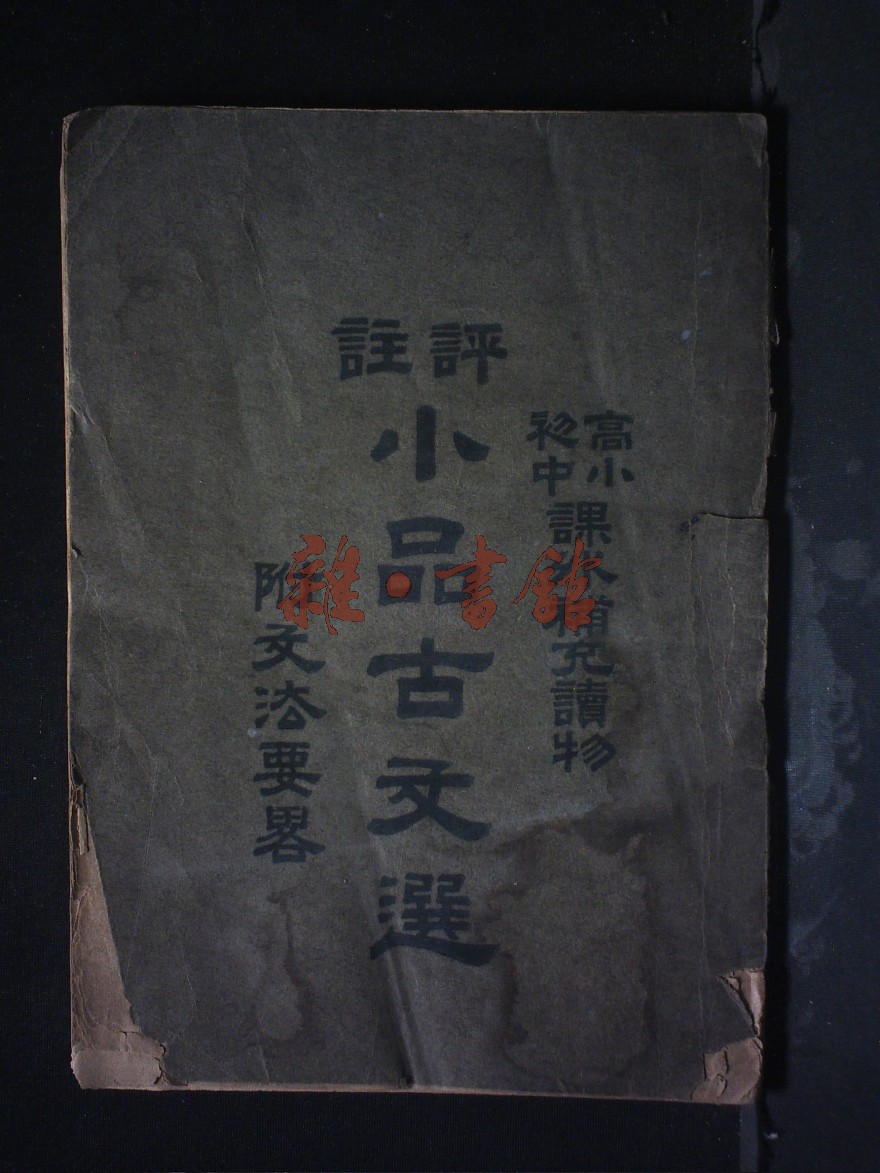 高小
初中
課外補充讀物
評註
小品古文選
附文法要畧
雜·書館